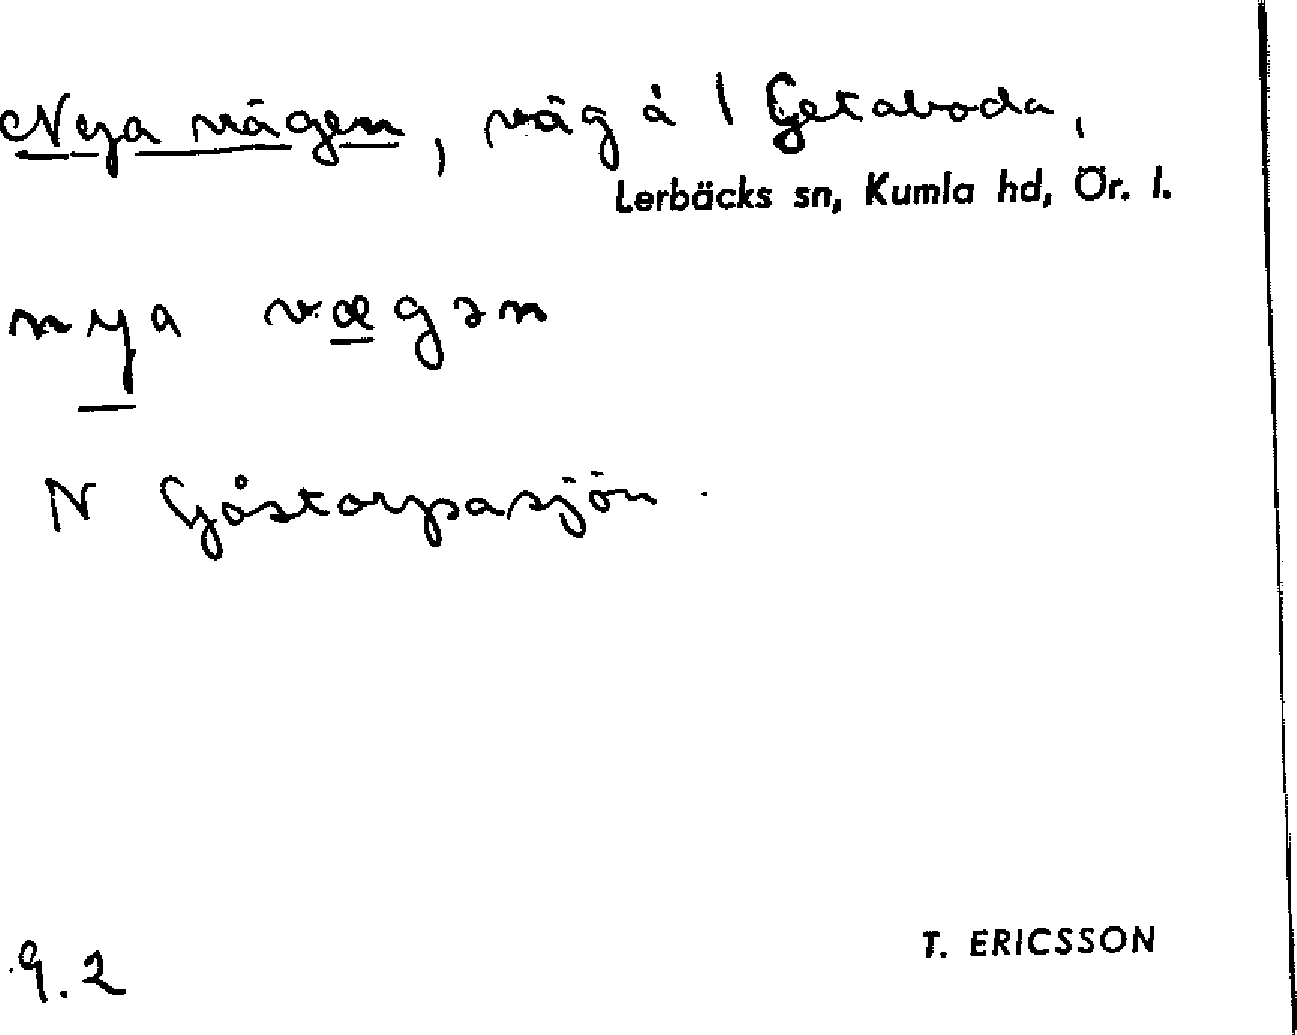 Nya vägen, väg å 1 Getaboda,
Lerbäcks sn, Kumla hd, Ör. l.
nya vægən
N Gåstorpasjön.
9.2
T. ERICSSON